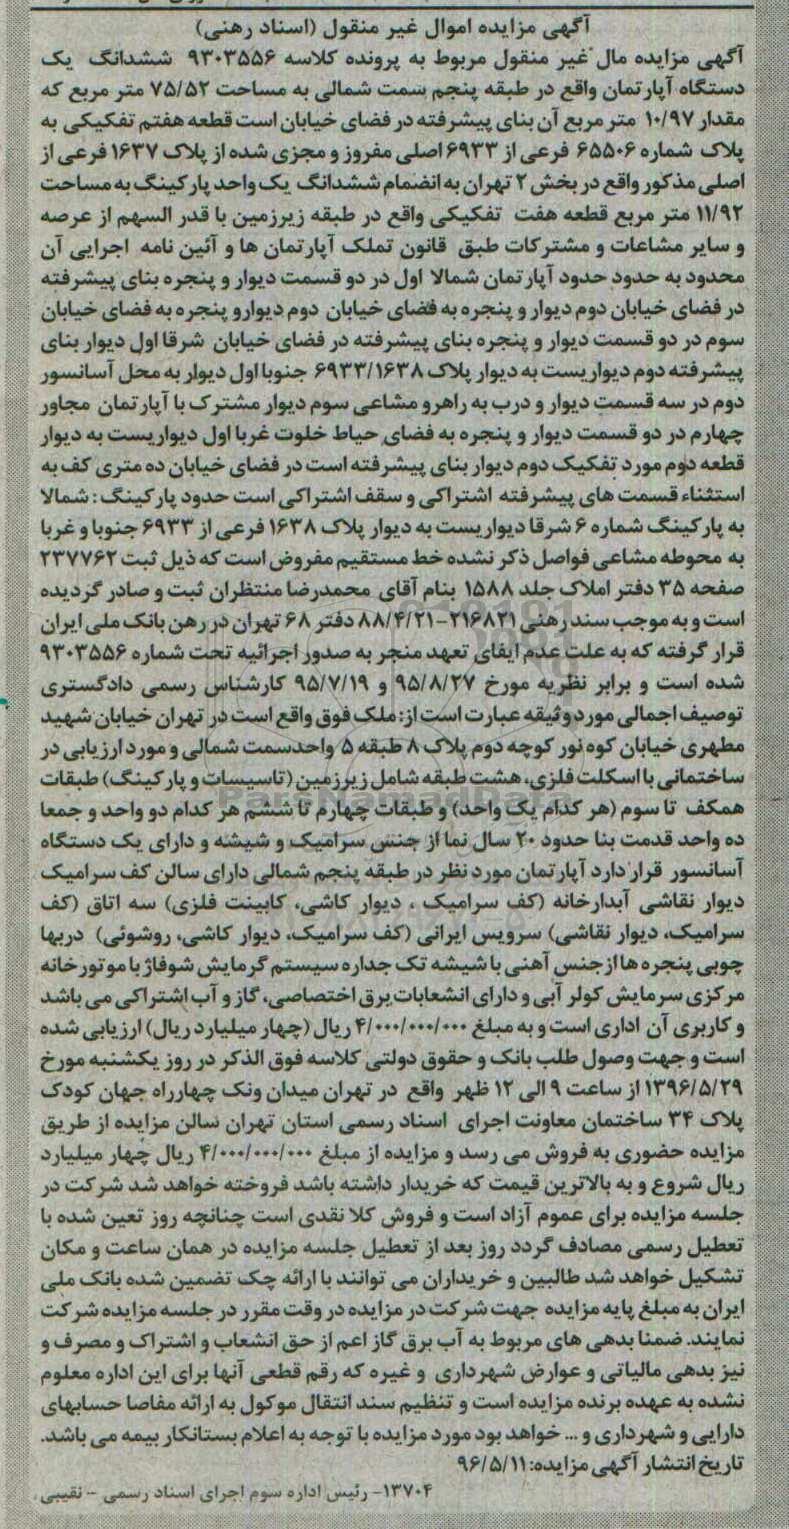 آگهی مزایده اموال غیر منقول (اسناد رهنی)
آگهی مزایده مال غیر منقول مربوط به پرونده کلاسه ۹۳۰۳۵۵۶ ششدانگ یک
دستگاه آپارتمان واقع در طبقه پنجم سمت شمالی به مساحت ۷۵/۵۲ متر مربع که
مقدار ۱۰/۹۷ متر مربع آن بنای پیشرفته در فضای خیابان است قطعه هفتم تفکیکی به
پلاک شماره ۶۵۵۰۶ فرعی از ۶۹۳۳ اصلی مفروز و مجزی شده از پلاک ۱۶۳۷ فرعی از
اصلی مذکور واقع در بخش ۲ تهران به انضمام ششدانگ یک واحد پارکینگ به مساحت
۱۱/۹۲ متر مربع قطعه هفت تفکیکی واقع در طبقه زیرزمین با قدر السهم از عرصه
و سایر مشاعات و مشترکات طبق قانون تملک آپارتمان ها و آئین نامه اجرایی آن
محدود به حدود حدود آپارتمان شمالا اول در دو قسمت دیوار و پنجره بنای پیشرفته
در فضای خیابان دوم دیوار و پنجره به فضای خیابان دوم دیوارو پنجره به فضای خیابان
سوم در دو قسمت دیوار و پنجره بنای پیشرفته در فضای خیابان شرقا اول دیوار بنای
پیشرفته دوم دیواریست به دیوار پلاک ۶۹۳۳/۱۶۳۸ جنوبا اول دیوار به محل آسانسور
دوم در سه قسمت دیوار و درب به راهرو مشاعی سوم دیوار مشترک با آپارتمان مجاور
چهارم در دو قسمت دیوار و پنجره به فضای حیاط خلوت غربا اول دیواریست به دیوار
قطعه دوم مورد تفکیک دوم دیوار بنای پیشرفته است در فضای خیابان ده متری کف به
استثناء قسمت های پیشرفته اشتراکی و سقف اشتراکی است حدود پارکینگ : شمالا
به پارکینگ شماره ۶ شرقا دیواریست به دیوار پلاک ۱۶۳۸ فرعی از ۶۹۳۳ جنوبا و غربا
به محوطه مشاعی فواصل ذکر نشده خط مستقیم مفروض است که ذیل ثبت ۲۳۷۷۶۲
صفحه ۳۵ دفتر املاک جلد ۱۵۸۸ بنام آقای محمدرضا منتظران ثبت و صادر گردیده
است و به موجب سند رهنی ۲۱۶۸۲۱-۸۸/۴/۲۱ دفتر ۶۸ تهران در رهن بانک ملی ایران
قرار گرفته که به علت عدم ایفای تعهد منجر به صدور اجرائیه تحت شماره ۹۳۰۳۵۵۶
شده است و برابر نظریه مورخ ۹۵/۸/۲۷ و ۹۵/۷/۱۹ کارشناس رسمی دادگستری
توصیف اجمالی مورد وثیقه عبارت است از: ملک فوق واقع است در تهران خیابان شهید
مطهری خیابان کوه نور کوچه دوم پلاک ۸ طبقه ۵ واحدسمت شمالی و مورد ارزیابی در
ساختمانی با اسکلت فلزی، هشت طبقه شامل زیرزمین (تاسیسات و پارکینگ) طبقات
همکف تا سوم (هر کدام یک واحد) و طبقات چهارم تا ششم هر کدام دو واحد و جمعا
ده واحد قدمت بنا حدود ۲۰ سال نما از جنس سرامیک و شیشه و دارای یک دستگاه
آسانسور قرار دارد آپارتمان مورد نظر در طبقه پنجم شمالی دارای سالن کف سرامیک
دیوار نقاشی آبدارخانه (کف سرامیک ، دیوار کاشی، کابینت فلزی) سه اتاق (کف
سرامیک، دیوار نقاشی) سرویس ایرانی (کف سرامیک، دیوار کاشی، روشوئی) دربها
چوبی پنجره ها از جنس آهنی با شیشه تک جداره سیستم گرمایش شوفاژ با موتور خانه
مرکزی سرمایش کولر آبی و دارای انشعابات برق اختصاصی، گاز و آب اشتراکی می باشد
و کاربری آن اداری است و به مبلغ ۴/۰۰۰/۰۰۰/۰۰۰ ریال (چهار میلیارد ریال) ارزیابی شده
است و جهت وصول طلب بانک و حقوق دولتی کلاسه فوق الذکر در روز یکشنبه مورخ
۱۳۹۶/۵/۲۹ از ساعت ۹ الی ۱۲ ظهر واقع در تهران میدان ونک چهارراه جهان کودک
پلاک ۳۴ ساختمان معاونت اجرای اسناد رسمی استان تهران سالن مزایده از طریق
مزایده حضوری به فروش می رسد و مزایده از مبلغ ۴/۰۰۰/۰۰۰/۰۰۰ ریال چهار میلیارد
ریال شروع و به بالاترین قیمت که خریدار داشته باشد فروخته خواهد شد شرکت در
جلسه مزایده برای عموم آزاد است و فروش کلا نقدی است چنانچه روز تعین شده با
تعطیل رسمی مصادف گردد روز بعد از تعطیل جلسه مزایده در همان ساعت و مکان
تشکیل خواهد شد طالبین و خریداران می توانند با ارائه چک تضمین شده بانک ملی
ایران به مبلغ پایه مزایده جهت شرکت در مزایده در وقت مقرر در جلسه مزایده شرکت
نمایند. ضمنا بدهی های مربوط به آب برق گاز اعم از حق انشعاب و اشتراک و مصرف و
نیز بدهی مالیاتی و عوارض شهرداری و غیره که رقم قطعی آنها برای این اداره معلوم
نشده به عهده برنده مزایده است و تنظیم سند انتقال موکول به ارائه مفاصا حسابهای
دارایی و شهرداری و ... خواهد بود مورد مزایده با توجه به اعلام بستانکار بیمه می باشد.
تاریخ انتشار آگهی مزایده: ۹۶/۵/۱۱
۱۳۷۰۴- رئیس اداره سوم اجرای اسناد رسمی - نقیبی